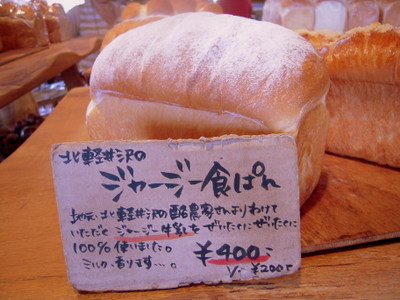 北軽井沢の
ジャージー食ぱん
地元・北軽井沢の酪農家さんよりわけて
いただく ジャージー牛乳を ぜいたくにぜいたくに
100% 使いました。
ミルク、香ります…。
¥400-
½ ¥200で